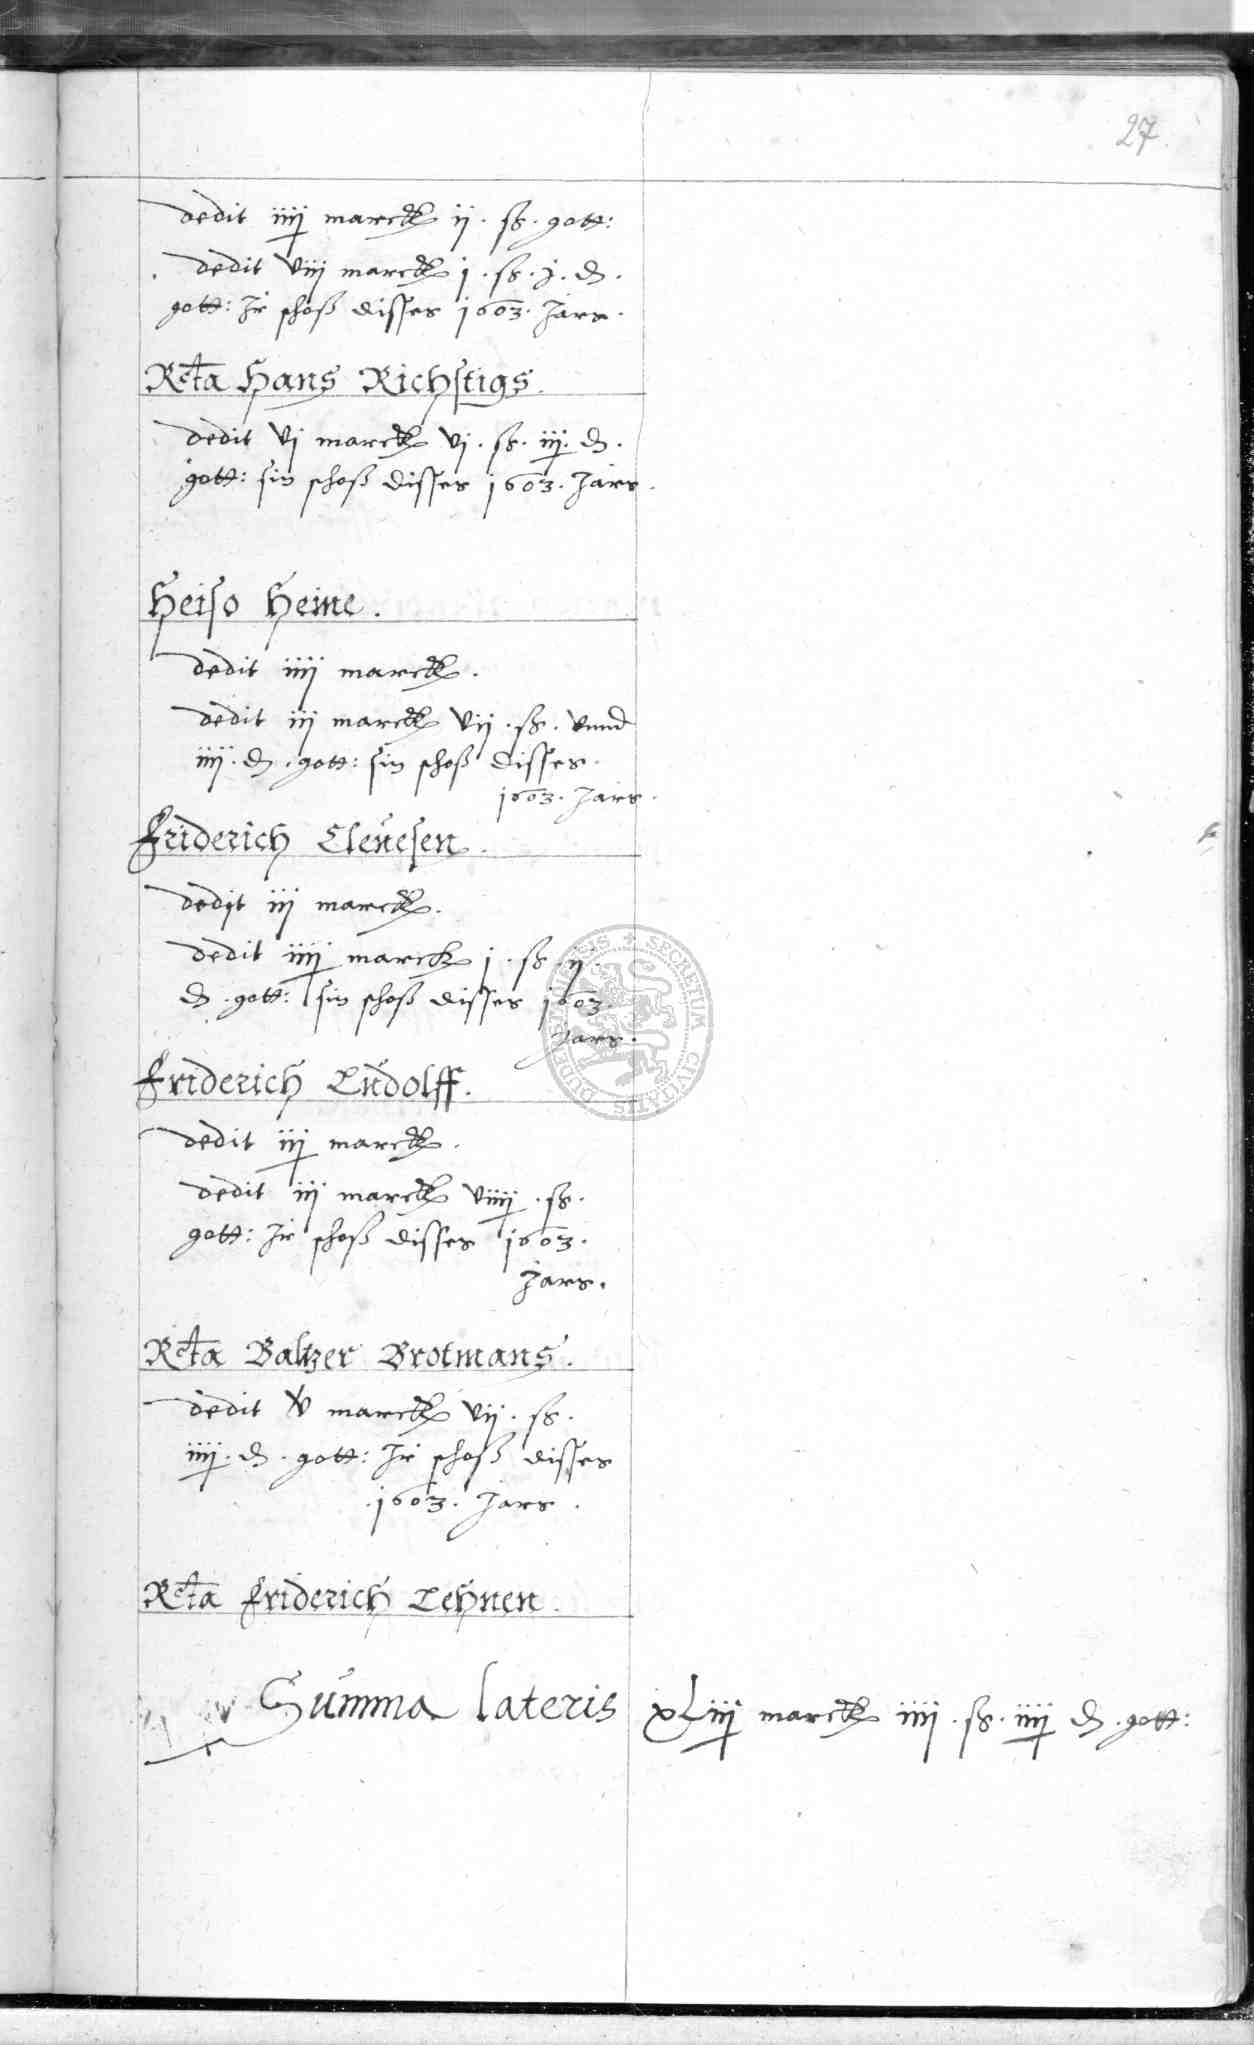 27
dedit iiij marck ij. ß. gott:
dedit viij marck j. ß. j. ₰.
gott: Ir schoß disses 1603. Jars.
Rcta Hans Richstigs.
dedit vj marck vj. ß. iij. ₰.
gott: sin schoß disses 1603. Jars.
Heiso Heine.
dedit iiij marck.
dedit iij marck vij. ß. vnnd
iiij. ₰. gott: sin schoß disses
1603. Jars.
Friderich Cleuesen.
dedit iij marck.
dedit iiij marck j. ß. ij.
₰. gott: sin schoß disses 1603.
Jars.
Friderich Ludolff.
dedit iij marck.
dedit iij marck viiij. ß.
gott: Ir schoß disses 1603.
Jars.
Rcta Baltzer Brotmans.
dedit v marck vij. ß.
iiij. ₰. gott: Ir schoß disses
.1603. Jars.
Rcta Friderich Lehnen.
Summa lateris xLiij marck iiij. ß. iiij ₰. gott:
SECRETUM CIVITATIS DUDERSTADENSIS